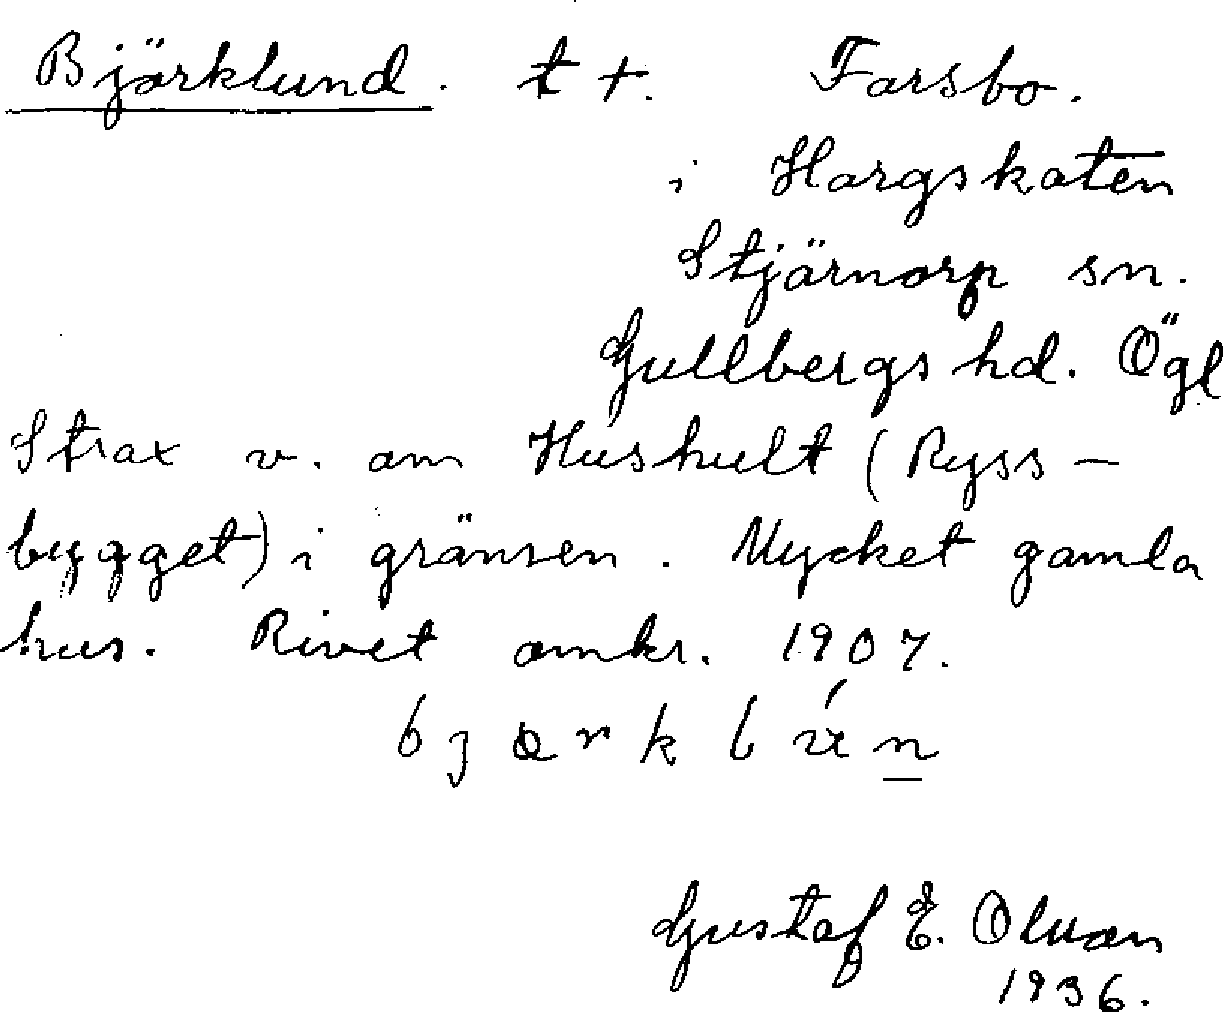 Björklund. t +. Farsbo.
i Hargskaten
Stjärnorp sn.
Gullbergs hd. Ögl
Strax v. om Hushult (Ryss-
bygget) i gränsen. Mycket gamla
hus. Rivet omkr. 1907.
Gustaf E. Olsson
1936.